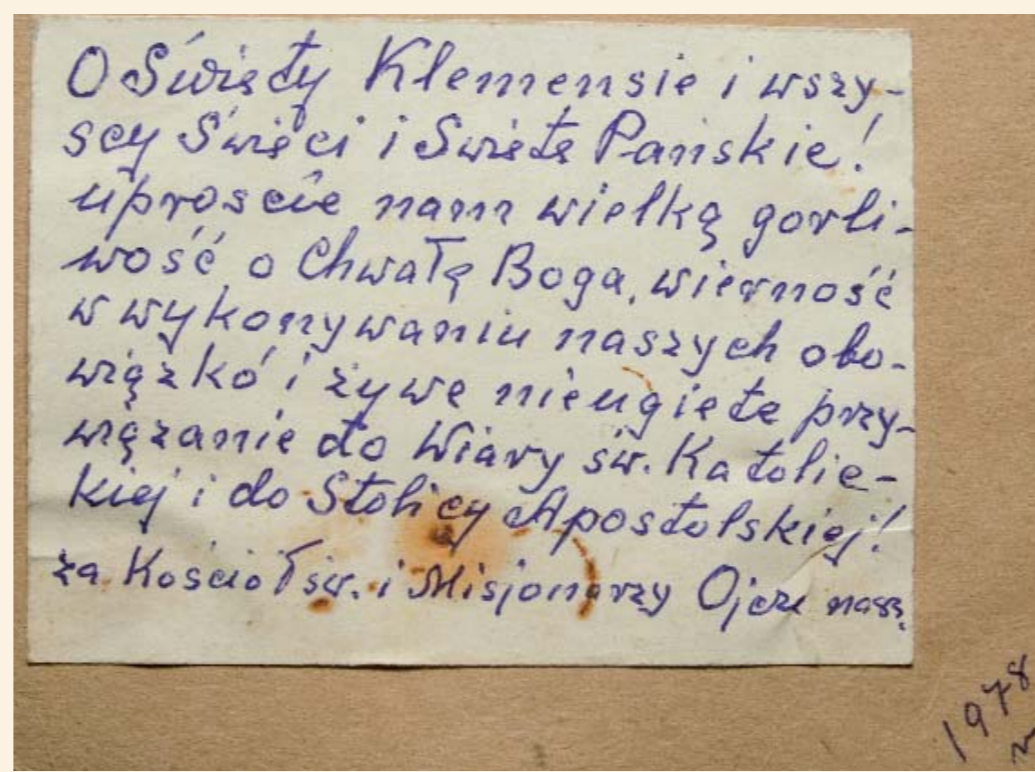 O Święty Klemensie i wszy-
scy Święci i Święte Pańskie!
uproscie nam wielką gorli-
wość o Chwałę Boga, wierność
w wykonywaniu naszych obo-
wiązkó i żywe nieugięte przy-
wiązanie do Wiary św. Katolic-
kiej i do Stolicy Apostolskiej!
za Kościoł św. i Misjonarzy Ojcze nasz.
1978